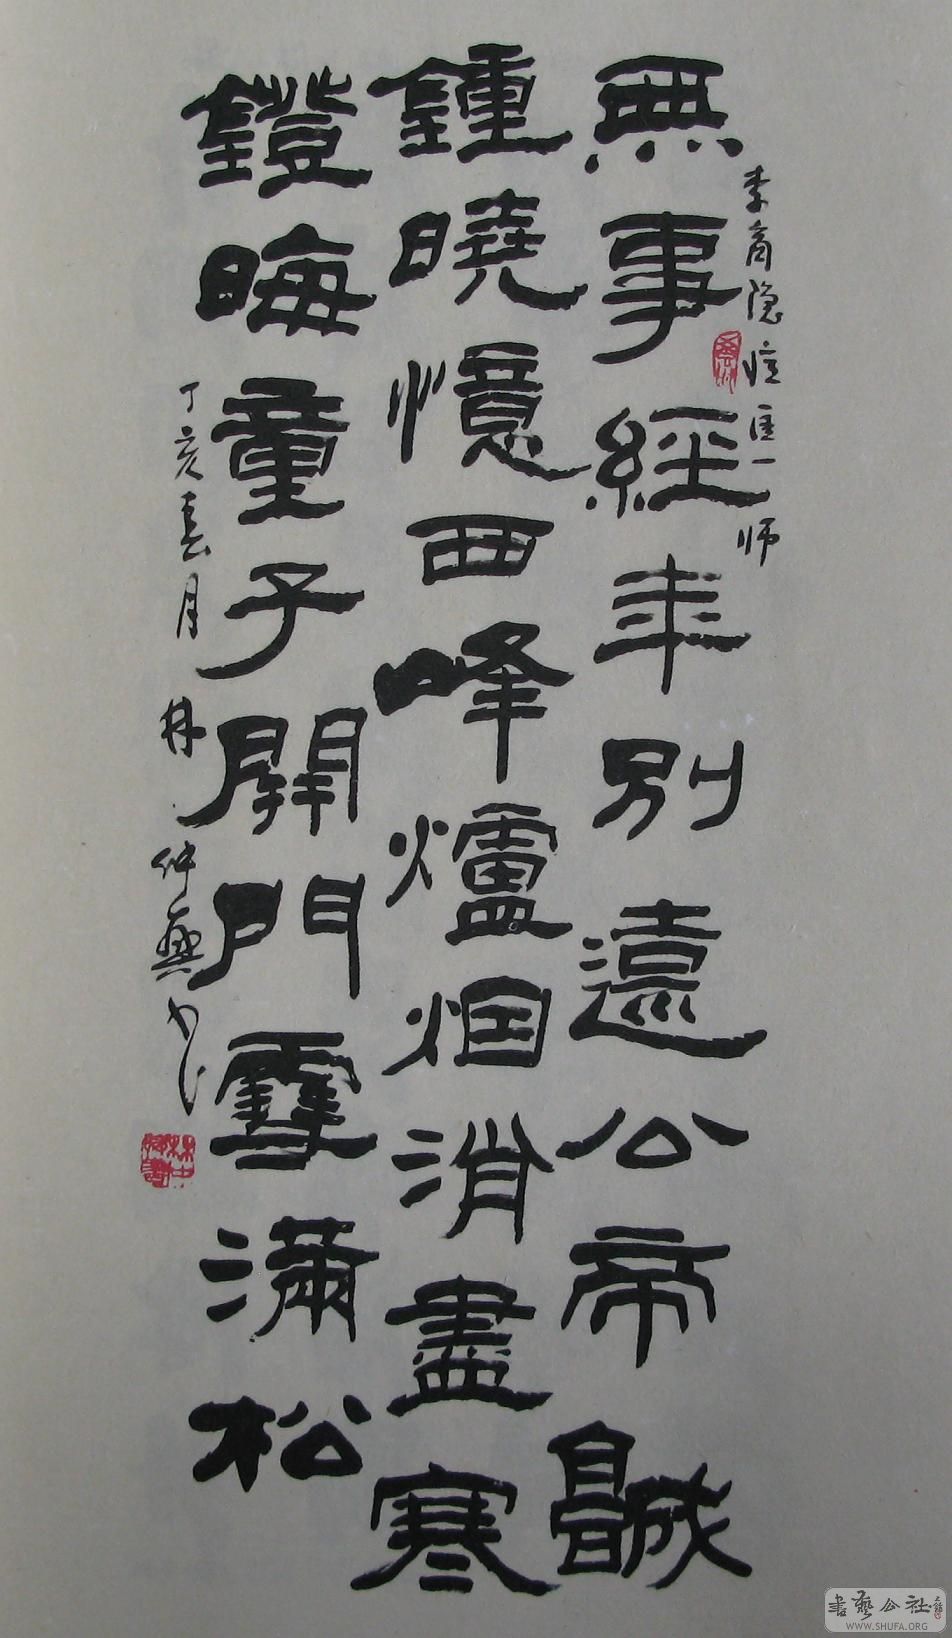 李商隐忆匡一师
無事經年別遠公帝城
鍾曉憶西峰爐烟消盡寒
鐙晦童子開門雪滿松
丁亥春月林仲興书
書藝公社
WWW.SHUFA.ORG